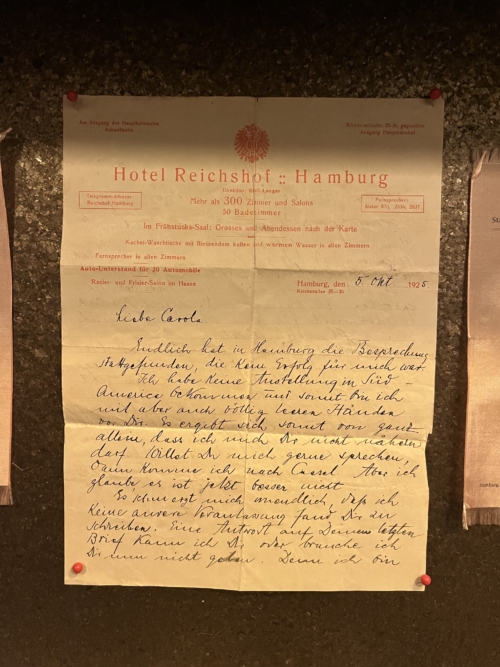 Am Ausgang des Hauptbahnhofes
Hotel Reichshof :: Hamburg
Direktor: Emil Langer
Mehr als 300 Zimmer und Salons
50 Badezimmer
Telegramm-Adresse:
Reichshof-Hamburg
Fernsprecher:
Im Frühstücks-Saal: Grosses Abendessen nach der Karte
Kachel-Waschtische mit fliessendem kalten und warmem Wasser in allen Zimmern
Fernsprecher in allen Zimmern
Auto-Unterstand für 20 Automobile
Rasier- und Frisier-Salon im Hause
Hamburg, den 5 Okt 1925
Liebe Carola
Endlich hat in Hamburg die Besprechung
stattgefunden, die kein Erfolg für mich war.
Ich habe keine Anstellung in Süd-
Amerika bekommen und somit bin ich
mit aber auch völlig leeren Händen
vor Dir. Es ergibt sich somit von ganz
allein, dass ich mich Dir nicht nähern
darf. Willst Du mich gerne sprechen,
Dann komme ich nach Cassel Aber ich
glaube es ist jetzt besser nicht
Es schmerzt mich unendlich, daß ich
keine andere Veranlassung fand Dir zu
schreiben. Eine Antwort auf Deinen letzten
Brief kann ich Dir oder brauche ich
Dir nun nicht geben. Denn ich bin